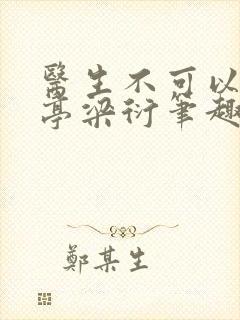 醫生不可以
亭梁衍筆趣
鄭某生